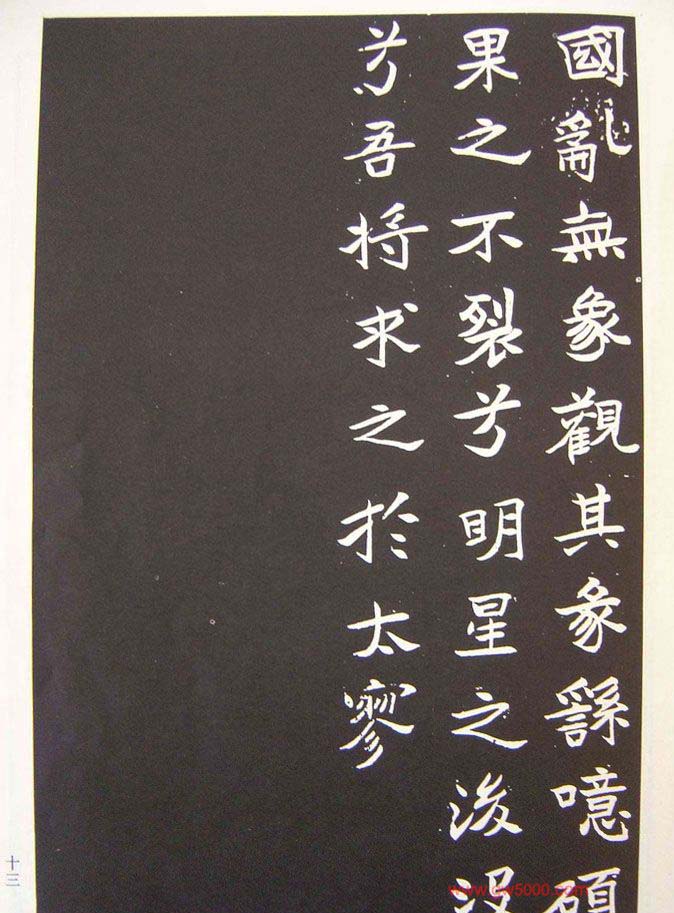 國亂無象觀其彖繇噫碩
果之不裂兮明星之浚没
兮吾將求之於太寥
十三